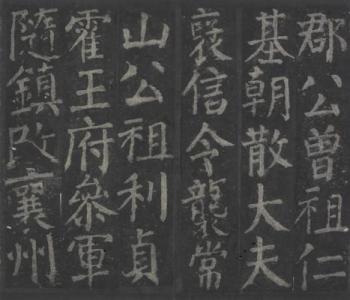 郡公曾祖仁
基朝散大夫
襃信令襲常
山公祖利貞
霍王府叅軍
隨鎮改襄州